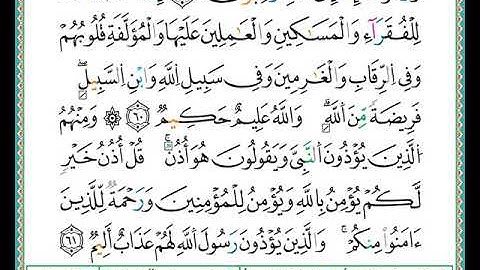 لِلْفُقَرَآءِ وَالْمَسَاكِينِ وَالْعَامِلِينَ عَلَيْهَا وَالْمُؤَلَّفَةِ قُلُوبُهُمْ
وَفِي الرِّقَابِ وَالْغَارِمِينَ وَفِي سَبِيلِ اللَّهِ وَابْنِ السَّبِيلِ
فَرِيضَةً مِّنَ اللَّهِ وَاللَّهُ عَلِيمٌ حَكِيمٌ ٦٠ وَمِنْهُمُ
الَّذِينَ يُؤْذُونَ النَّبِيَّ وَيَقُولُونَ هُوَ أُذُنٌ قُلْ أُذُنُ خَيْرٍ
لَّكُمْ يُؤْمِنُ بِاللَّهِ وَيُؤْمِنُ لِلْمُؤْمِنِينَ وَرَحْمَةٌ لِّلَّذِينَ
ءَامَنُوا مِنكُمْ وَالَّذِينَ يُؤْذُونَ رَسُولَ اللَّهِ لَهُمْ عَذَابٌ أَلِيمٌ ٦١